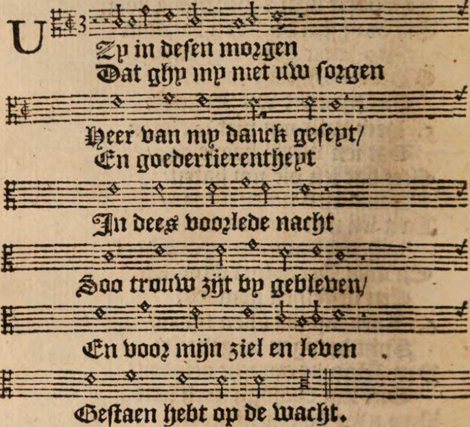 U Zy in desen morgen
Dat ghy my met uw sorgen
Heer van my danck geseyt/
En goedertierentheyt
In dees voorlede nacht
Soo trouw zijt by gebleven/
En voor mijn ziel en leven
Gestaen hebt op de wacht.